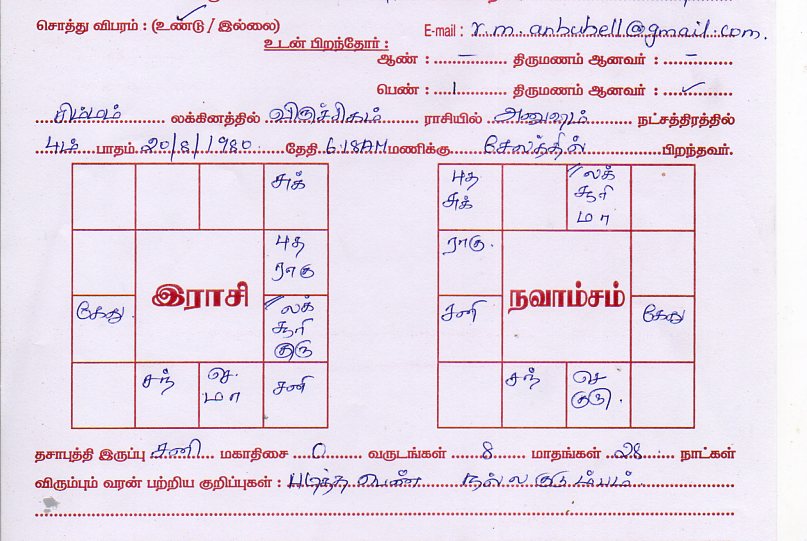 சொத்து விபரம் : (உண்டு / இல்லை) E-mail : r.m.anbubell@gmail.com.
உடன் பிறந்தோர் :
ஆண் : ...–... திருமணம் ஆனவர் : ...–...
பெண் : ...1... திருமணம் ஆனவர் : ...✓...
சிம்மம் லக்கினத்தில் விருச்சிகம் ராசியில் அனுஷம் நட்சத்திரத்தில்
4ம் பாதம் 20/8/1980 தேதி 6.18AM மணிக்கு சேலத்தில் பிறந்தவர்.
சுக்
புத
ராகு
இராசி
கேது
லக்
சூரி
குரு
சந்
செ
மா
சனி
புத
சுக்
லக்
சூரி
மா
ராகு
நவாம்சம்
சனி
கேது
சந்
செ
குரு
தசாபுத்தி இருப்பு சனி மகாதிசை 0 வருடங்கள் 8 மாதங்கள் 28 நாட்கள்
விரும்பும் வரன் பற்றிய குறிப்புகள் : படித்த பெண் நல்ல குடும்பம்